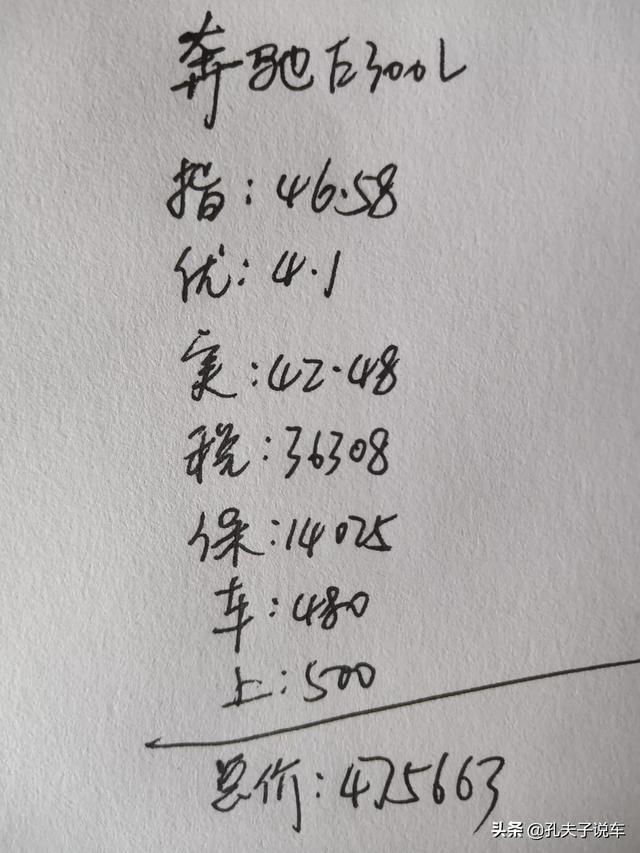 奔驰E300L
指:46.58
优:4.1
实:42.48
税:36308
保:14025
车:480
上:500
总价:475663
头条 @孔夫子说车